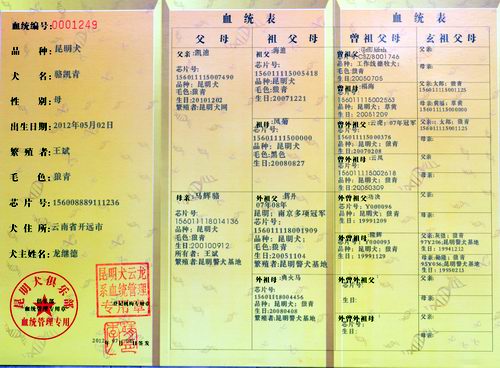 血统编号:0001249
品种:昆明犬
犬名:骆凯青
性别:母
出生日期:2012年05月02日
繁殖者:王斌
毛色:狼青
芯片号:156008889111236
犬住所:云南省开远市
犬主姓名:龙继德
昆明犬俱乐部
血统管理专用
昆明犬云龙
系血统管理
专用章
血统表
父母
祖父母
父亲:凯迪
芯片号:
156011115007490
品种:昆明犬
毛色:狼青
生日:20101202
繁殖者:昆明犬网
祖父:海迪
芯片号:
156011115005418
品种:昆明犬
毛色:狼青
生日:20071221
祖母:凤菊
芯片号:
156011115000000
品种:昆明犬
毛色:黑色
生日:20080827
母亲:马辉骆
芯片号:
156011118014136
品种:昆明犬
毛色:狼青
生日:201000912
所有者:王斌
繁殖者:昆明警犬基地
外祖父:
07年08年
昆明;南京多项冠军
芯片号:
156011118001909
品种:昆明犬
毛色:狼青
生日:20051104
繁殖者:昆明警犬基地
外祖母:典火马
芯片号:
15601118004456
品种:昆明犬
毛色:狼青
生日:20080408
繁殖者:昆明警犬基地
血统表
曾祖父母
玄祖父母
曾祖父:
品种:工作线德牧犬:
毛色:狼青
生日:20050705
曾祖母:福海
芯片号:
156011115002553
品种:昆明犬:草黄
生日:20051209
曾外祖父:云虎:07年冠军
芯片号:
156011115000376
品种:昆明犬:狼青
生日:20079208
曾外祖母:云凤
芯片号:
156011115002618
品种:昆明犬:狼青
生日:20060309
外曾祖父:马波
芯片号:Y000096
品种:昆明犬:狼青
生日:19991129
外曾祖母:
芯片号:Y000095
品种:昆明犬:狼青
生日:19991109
外曾外祖父:
芯片号:
生日:
外曾外祖母:
芯片号:
生日:
父亲:
母亲:
父亲:太郎:狼青
156011115001125
母亲:黄福:草黄
156011115000013
母亲:
父亲:
母亲:
父亲:
母亲:
97Y206:昆明警犬基地
生日:19941212
95Y036:昆明警犬基地
生日:19950215
父亲:
母亲:
父亲:
母亲: